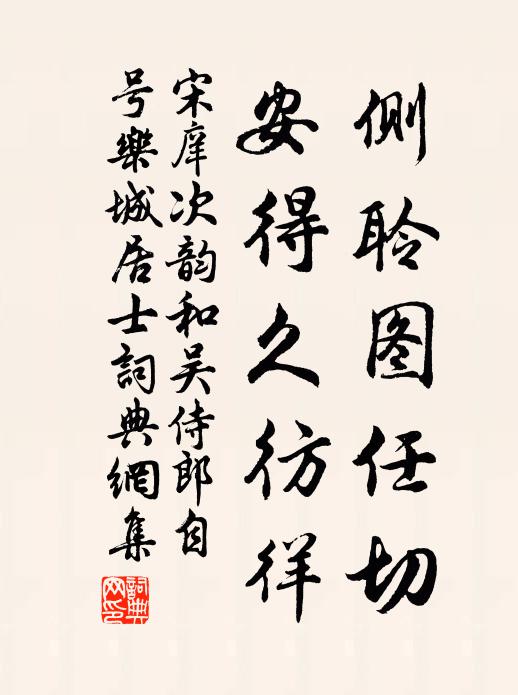 侧聆图任切
安得久彷徉
宋庠次韵和吴侍郎自
号樂城居士詞典網集
詞典网印